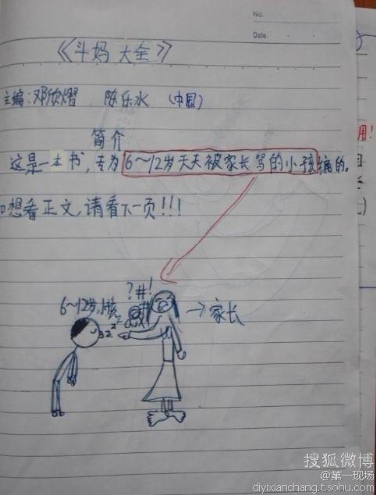 No.
Date.
《斗妈 大全》
主编:邓欣熠 陈乐水 (中国)
简介
这是一本书,专为6~12岁天天被家长骂的小孩编的。
想看正文,请看下一页!!!
?#!
6~12岁小孩
→家长
搜狐微博
@第一现场
diyixianchang.t.sohu.com